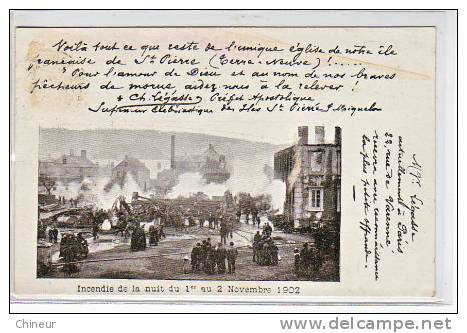 Voilà tout ce que reste de l'unique église de notre île
française de St Pierre (Terre-Neuve) !.....
Pour l'amour de Dieu et au nom de nos braves
pêcheurs de morue, aidez-nous à la relever !
+ Ch. Légasse, Préfet Apostolique
Supérieur Ecclésiastique des Iles St Pierre & Miquelon
Mgr Légasse
actuellement à Paris
22, rue de Varenne
recevra avec reconnaissance
la plus petite offrande.
Incendie de la nuit du 1er au 2 Novembre 1902
http://chineur.delcampe.net